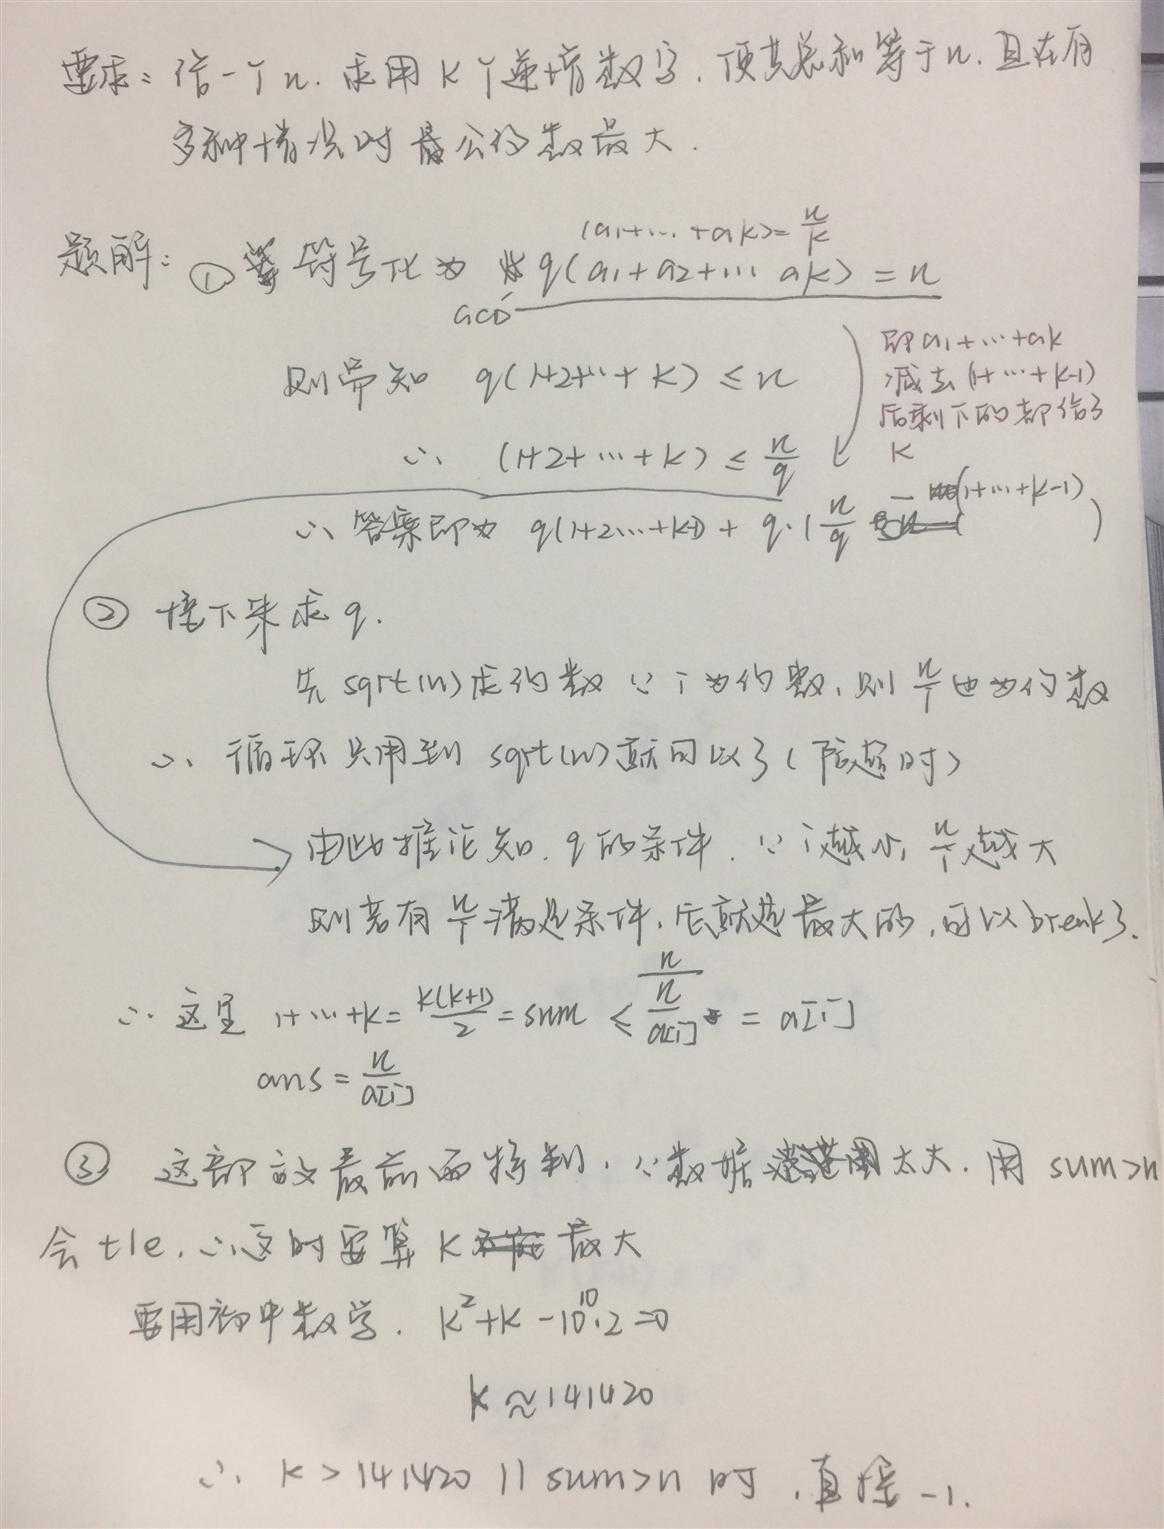 要求：给一个n. 求用K个递增数字，使其总和等于n. 且在有
多种情况时最公约数最大.
(a1+…+ak)=n/k
题解：① 符号化为 q(a1+a2+… ak) = n
GCD
则需知 q(1+2+…+K) ≤ n
即a1+…+ak
减去(1+…+k-1)
后剩下的都给了
K
∴ (1+2+…+K) ≤ n/q
∴ 答案即为 q(1+2…+k-1) + q·(n/q - (1+…+k-1))
② 接下来求q.
先sqrt(n)求约数 ∵ i为约数，则n/i也为约数
∴ 循环只用到sqrt(n)就可以了(防超时)
由此推论知，q的条件，∵ i越小，n/i越大
则若有n/i满足条件，后就是最大的，可以break了.
∴ 这里 1+…+K = K(K+1)/2 = sum ≤ n/(n/a[i]) = a[i]
ans = n/a[i]
③ 这部放最前面特判，∵数据范围太大，用sum>n
会tle，∴这时要算K最大
要用初中数学. K²+K-10¹⁰·2=0
K≈141420
∴ K>141420 || sum>n 时，直接-1.